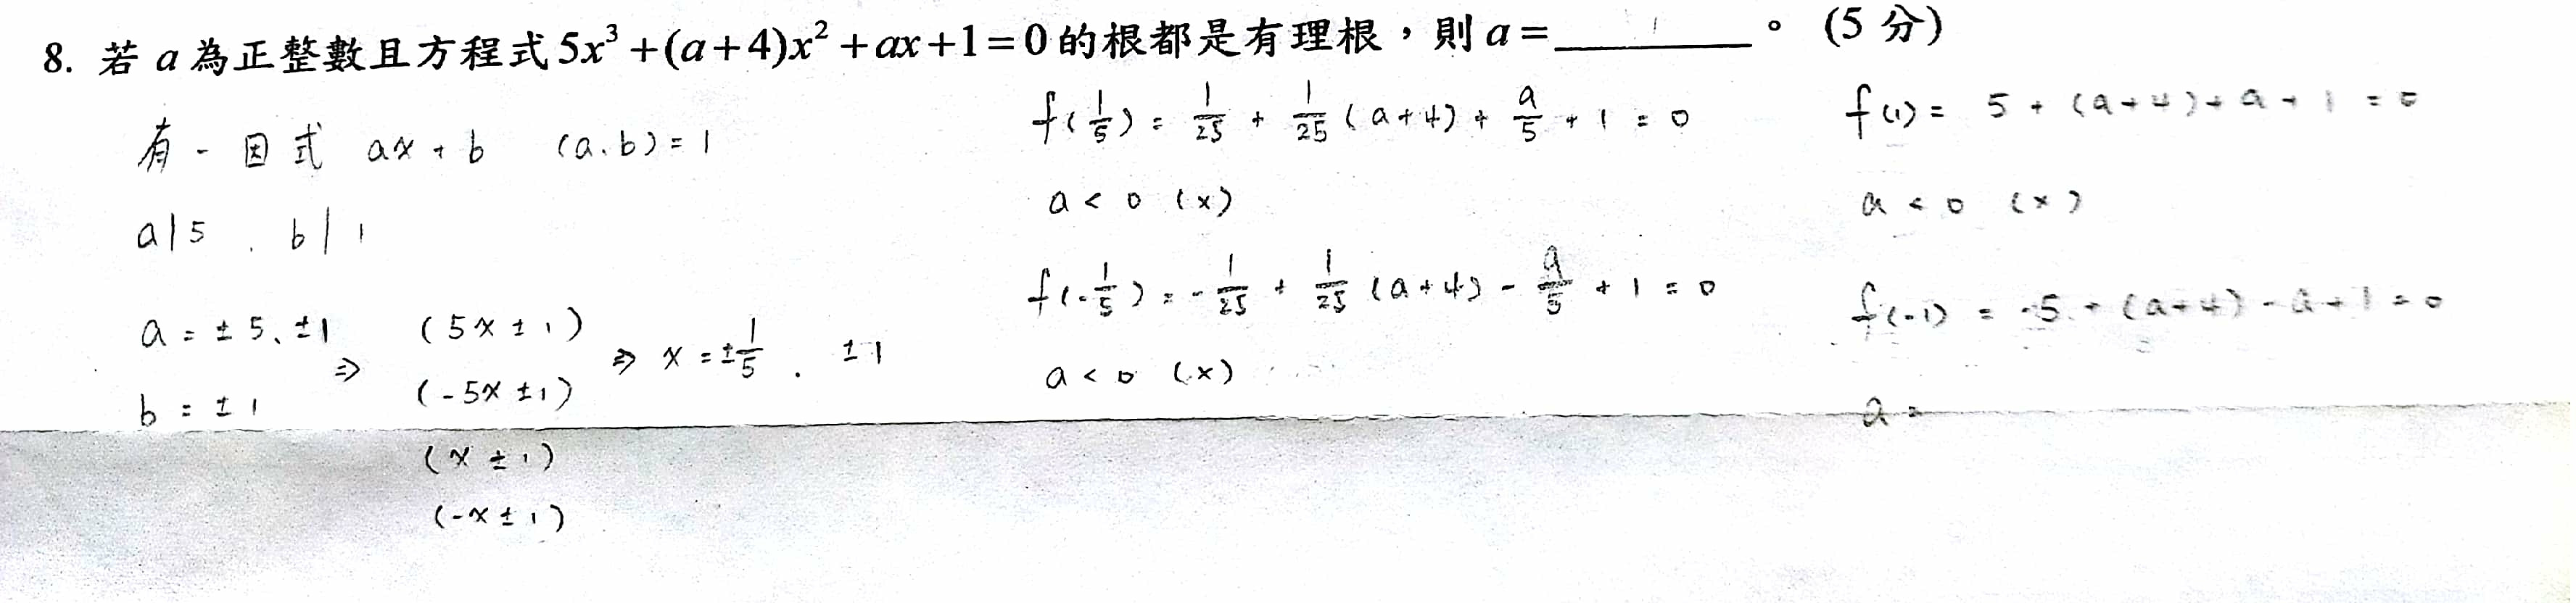 8. 若 a 為正整數且方程式 5x³+(a+4)x²+ax+1=0 的根都是有理根，則 a=____1____。 (5 分)
有一因式 ax+b (a,b)=1
a|5 , b|1
a = ±5、±1
b = ±1
⇒
(5x±1)
(-5x±1)
(x±1)
(-x±1)
⇒ x = ±1/5 , ±1
f(1/5) = 1/25 + 1/25 (a+4) + a/5 + 1 = 0
a < 0 (x)
f(-1/5) = -1/25 + 1/25 (a+4) - a/5 + 1 = 0
a < 0 (x)
f(1) = 5 + (a+4) + a + 1 = 0
a < 0 (x)
f(-1) = -5 + (a+4) - a + 1 = 0
a =